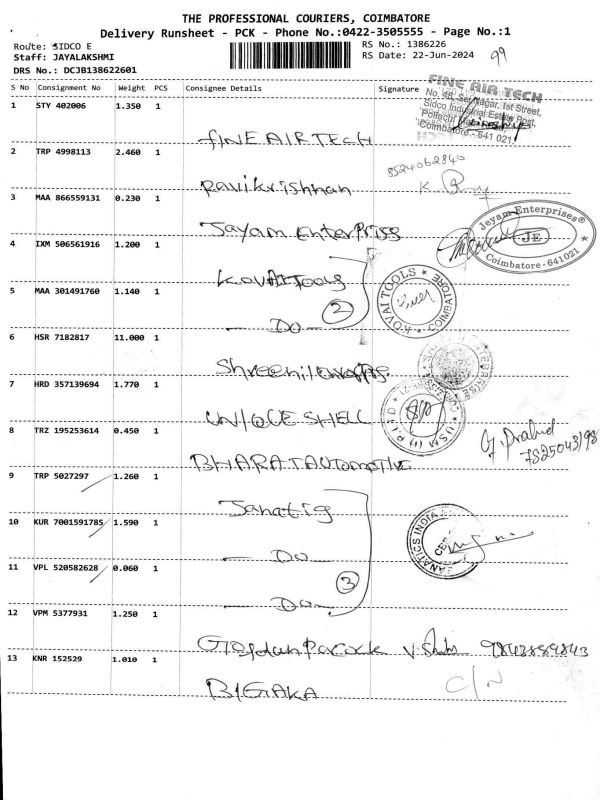 THE PROFESSIONAL COURIERS, COIMBATORE
Delivery Runsheet - PCK - Phone No.:0422-3505555 - Page No.:1
Route: SIDCO E
RS No.: 1386226
Staff: JAYALAKSHMI
RS Date: 22-Jun-2024
99
DRS No.: DCJB138622601
S No Consignment No Weight PCS Consignee Details Signature
FINE AIR TECH
1 STY 402006 1.350 1
Sidco Industrial Estate Post,
Coimbatore - 641 021
FINE AIR TECH
2 TRP 4998113 2.460 1
8524062840
Ravikrishnan
3 MAA 866559131 0.230 1
Jayam Enterprises
Jeyam Enterprises®
JE
Coimbatore-641021
4 IXM 506561916 1.200 1
KOVAI Tools
KOVAI TOOLS * COIMBATORE
5 MAA 301491760 1.140 1
2
— Do —
6 HSR 7182817 11.000 1
7 HRD 357139694 1.770 1
UNIQUE SHELL
USM (I) P LTD
8 TRZ 195253614 0.450 1
BHARAT AUTOMOTIVE
9 TRP 5027297 1.260 1
10 KUR 7001591785 1.590 1
— Do —
11 VPL 520582628 0.060 1
3
— Do —
12 VPM 5377931 1.250 1
9842889843
13 KNR 152529 1.010 1
C/N